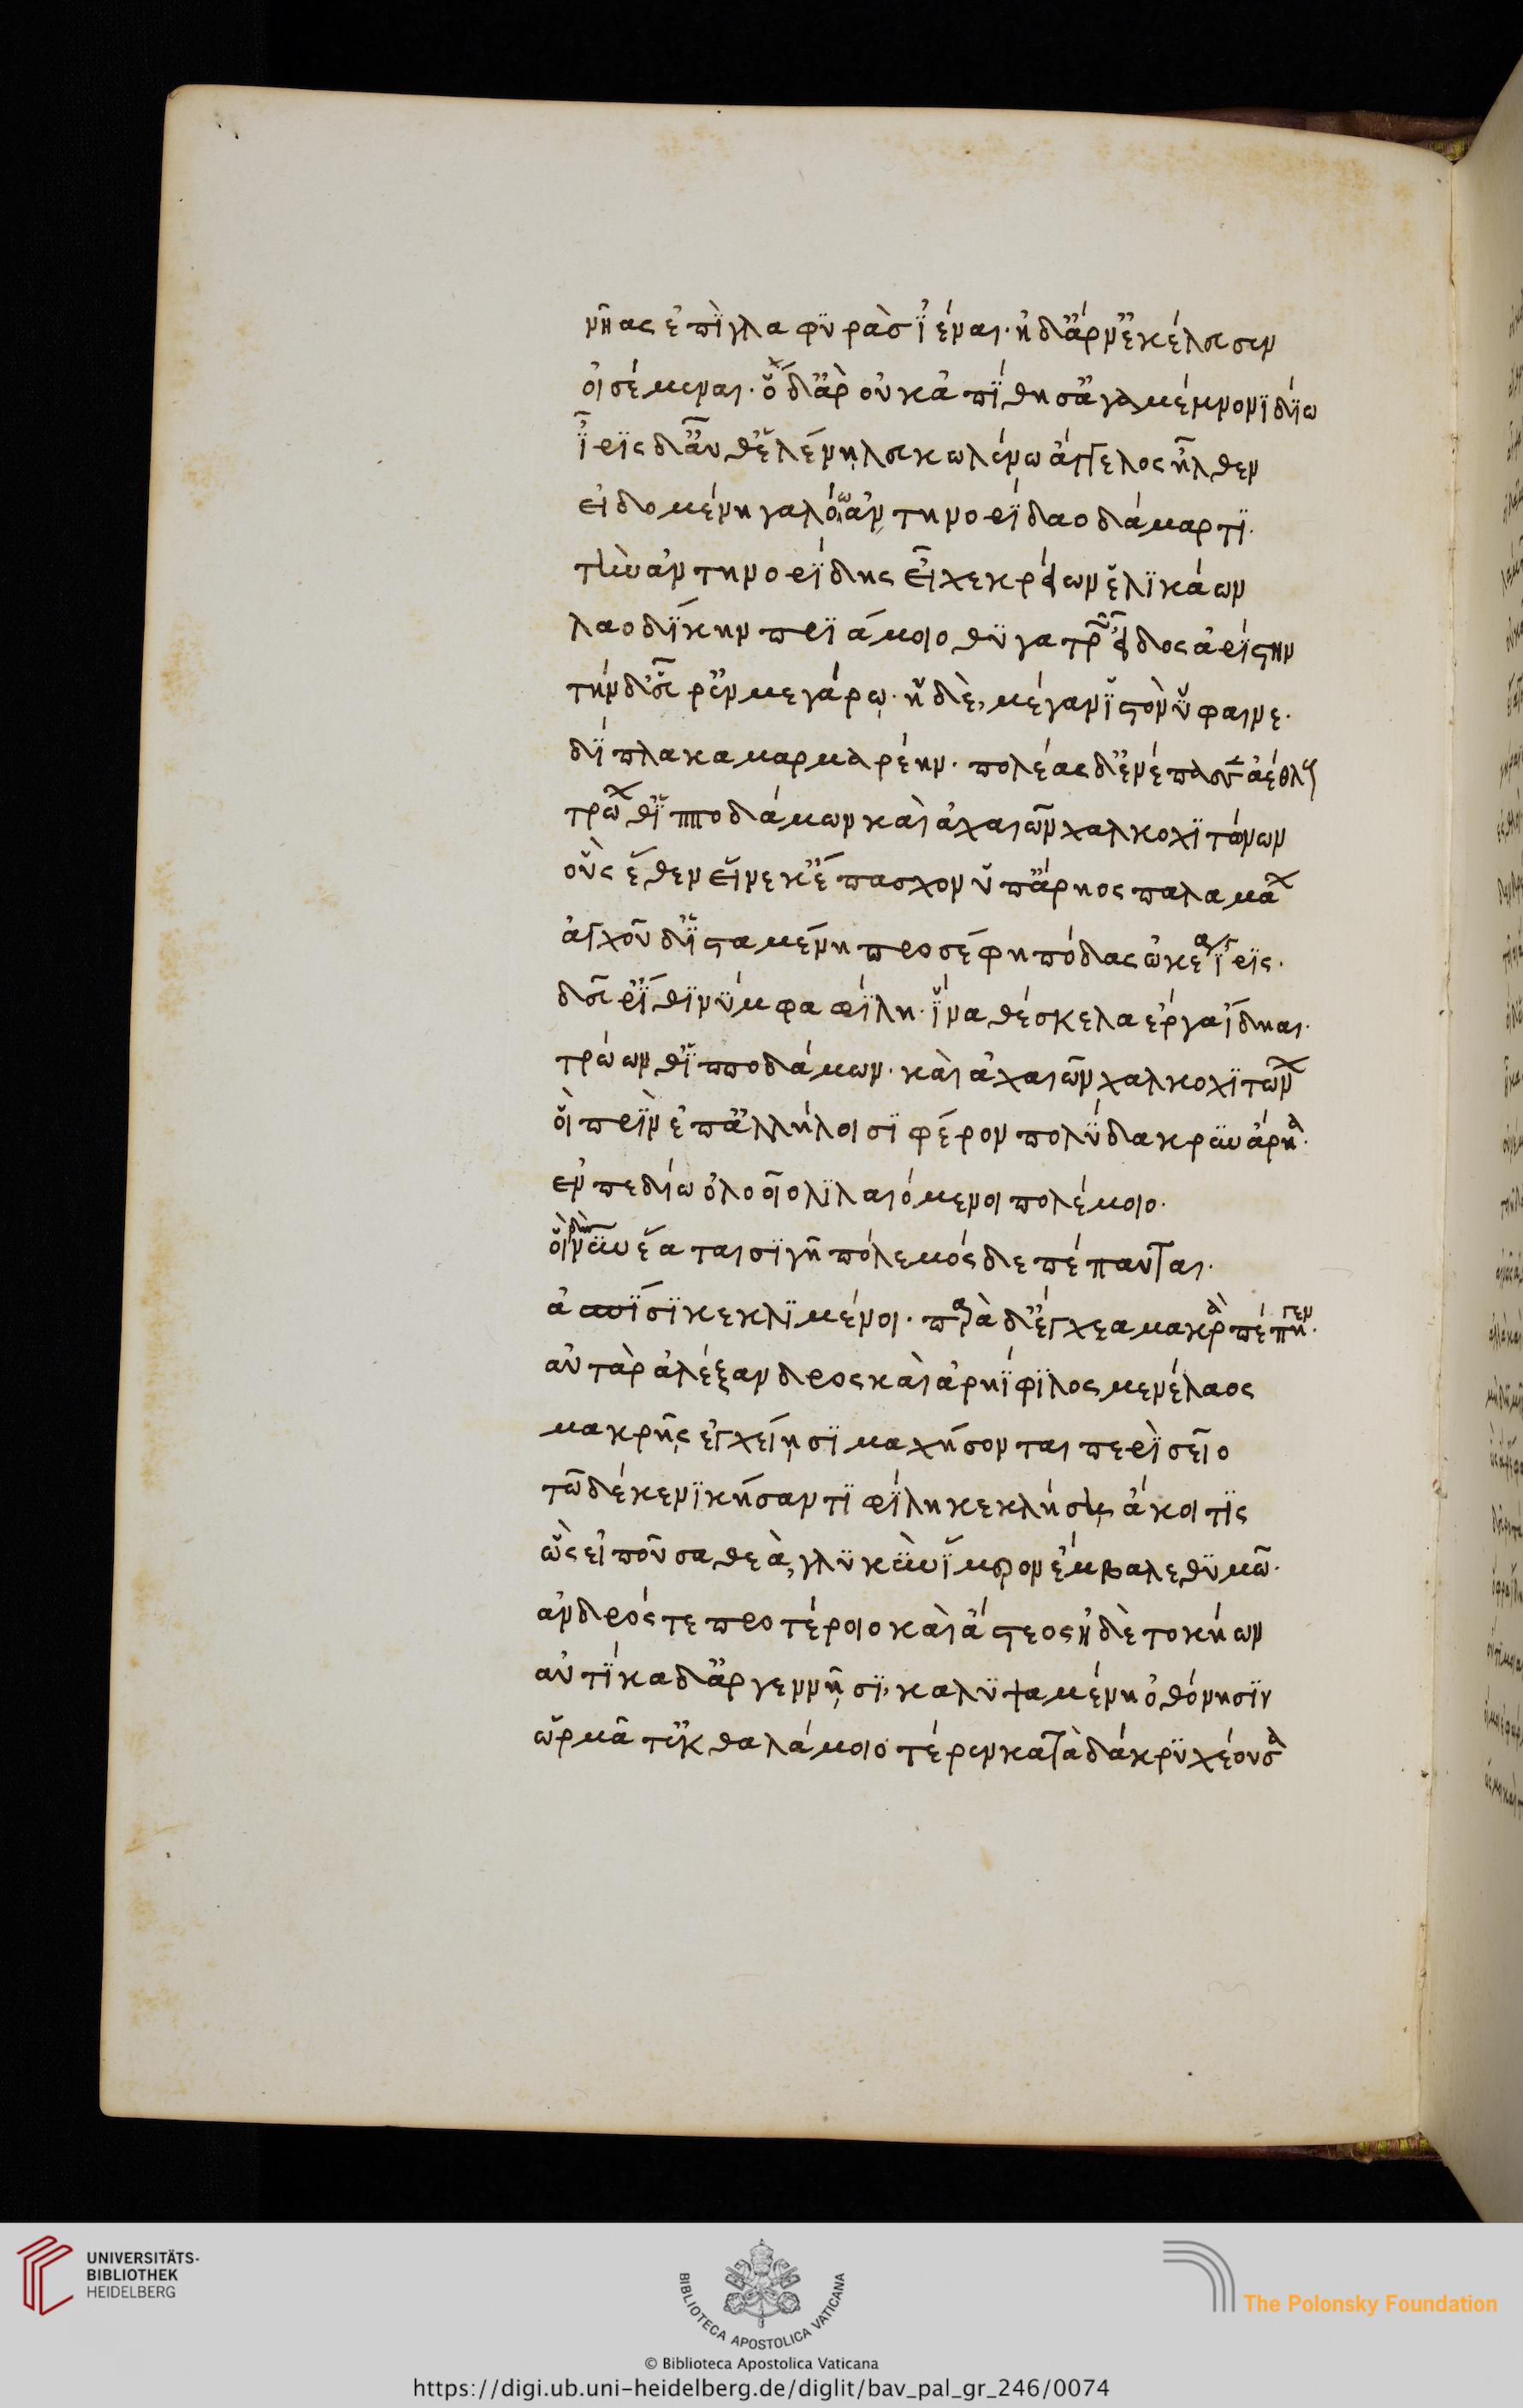 νῆας ἐπὶ γλαφυρὰσ ἰέναι· ἠδ' ἄρν' ἐκέλευσεν
οἰσέμεναι· ὃ δ' ἄρ οὐκ ἀπίθησ' ἀγαμέμνονι δίω
ἶρις δ' αὖθ' ἑλένη λευκωλένω ἄγγελος ἦλθεν
εἰδομένη γαλόω ἀντηνορίδαο δάμαρτι·
τὴν ἀντηνορίδης εἶχε κρείων ἑλικάων
λαοδίκην πριάμοιο θυγατρῶν εἶδος ἀρίστην
τὴν δ' εὗρ' ἐν μεγάρω· ἣ δὲ, μέγαν ἱστὸν ὕφαινε·
δίπλακα μαρμαρέην· πολέας δ' ἐνέπασσεν ἀέθλους
τρώων θ' ἱπποδάμων καὶ ἀχαιῶν χαλκοχιτώνων
οὓς ἕθεν εἵνεκ' ἔπασχον ὑπ' ἄρηος παλαμάων
ἀγχοῦ δ' ἱσταμένη προσέφη πόδας ὠκέα ἶρις·
δεῦρ' ἴθι νύμφα φίλη· ἵνα θέσκελα ἔργα ἴδηαι·
τρώων θ' ἱπποδάμων· καὶ ἀχαιῶν χαλκοχιτώνων
οἳ πρὶν ἐπ' ἀλλήλοισι φέρον πολύδακρυν ἄρηα·
ἐν πεδίω ὀλοοῖο λιλαιόμενοι πολέμοιο·
οἳ δὴ νῦν ἕαται σιγῆ πόλεμος δὲ πέπαυται·
ἀσπίσι κεκλιμένοι· παρὰ δ' ἔγχεα μακρὰ πέπηγεν·
αὐτὰρ ἀλέξανδρος καὶ ἀρηίφιλος μενέλαος
μακρῆς ἐγχείησι μαχήσονται περὶ σεῖο
τῶ δέ κε νικήσαντι φίλη κεκλήση ἄκοιτις
ὣς εἰποῦσα θεὰ, γλυκὺν ἵμερον ἔμβαλε θυμῶ·
ἀνδρός τε προτέροιο καὶ ἄστεος ἠδὲ τοκήων
αὐτίκα δ' ἀργεννῆσι, καλυψαμένη ὀθόνησιν
ὡρμᾶτ' ἐκ θαλάμοιο τέρεν κατὰ δάκρυ χέουσα
UNIVERSITÄTS-
BIBLIOTHEK
HEIDELBERG
BIBLIOTECA APOSTOLICA VATICANA
The Polonsky Foundation
© Biblioteca Apostolica Vaticana
https://digi.ub.uni-heidelberg.de/diglit/bav_pal_gr_246/0074